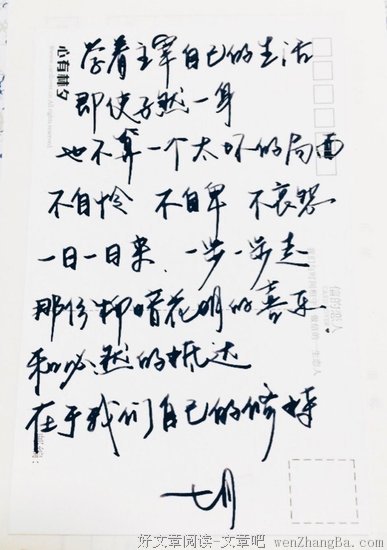 学着主宰自己的生活
即使孑然一身
也不算一个太坏的局面
不自怜 不自卑 不哀怨
一日一日来 一步一步走
那份柳暗花明的喜乐
和必然的抵达
在于我们自己的修持
七月
心有林夕
好文章阅读-文章吧 wenZhangBa.com